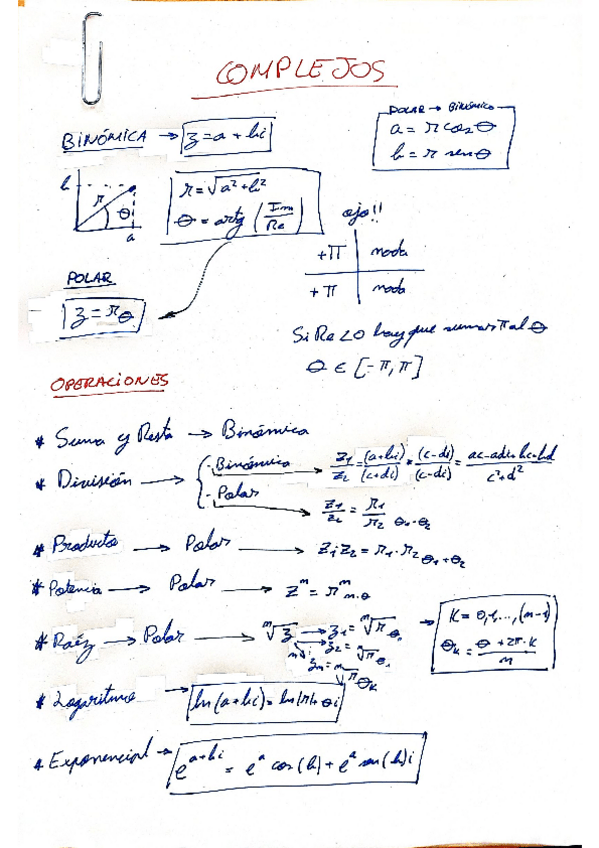 COMPLEJOS
POLAR → BINÓMICO
BINÓMICA → z = a + bi
a = r cos θ
b = r sen θ
b
r
θ
a
r = √a² + b²
θ = artg (Im/Re)
ojo!!
+π | nada
+π | nada
POLAR
z = r_θ
Si Re < 0 hay que sumar π al θ
θ ∈ [-π, π]
OPERACIONES
* Suma y Resta → Binómica
* División → - Binómica → z₁/z₂ = (a+bi)/(c+di) * (c-di)/(c-di) = ac-adi+bci+bd/c²+d²
- Polar → z₁/z₂ = r₁/r₂ θ₁-θ₂
* Producto → Polar → z₁z₂ = r₁·r₂ θ₁+θ₂
* Potencia → Polar → zⁿ = rⁿ n·θ
* Raíz → Polar → ⁿ√z → z₁ = ⁿ√r θ₀
z₂ = ⁿ√r θ₁
zₙ = ⁿ√r θₖ
→ K = 0,1,...,(n-1)
θₖ = θ + 2π·k / n
* Logaritmo → ln(a+bi) = ln|r| + θi
* Exponencial → e^(a+bi) = e^a cos(b) + e^a sen(b)i